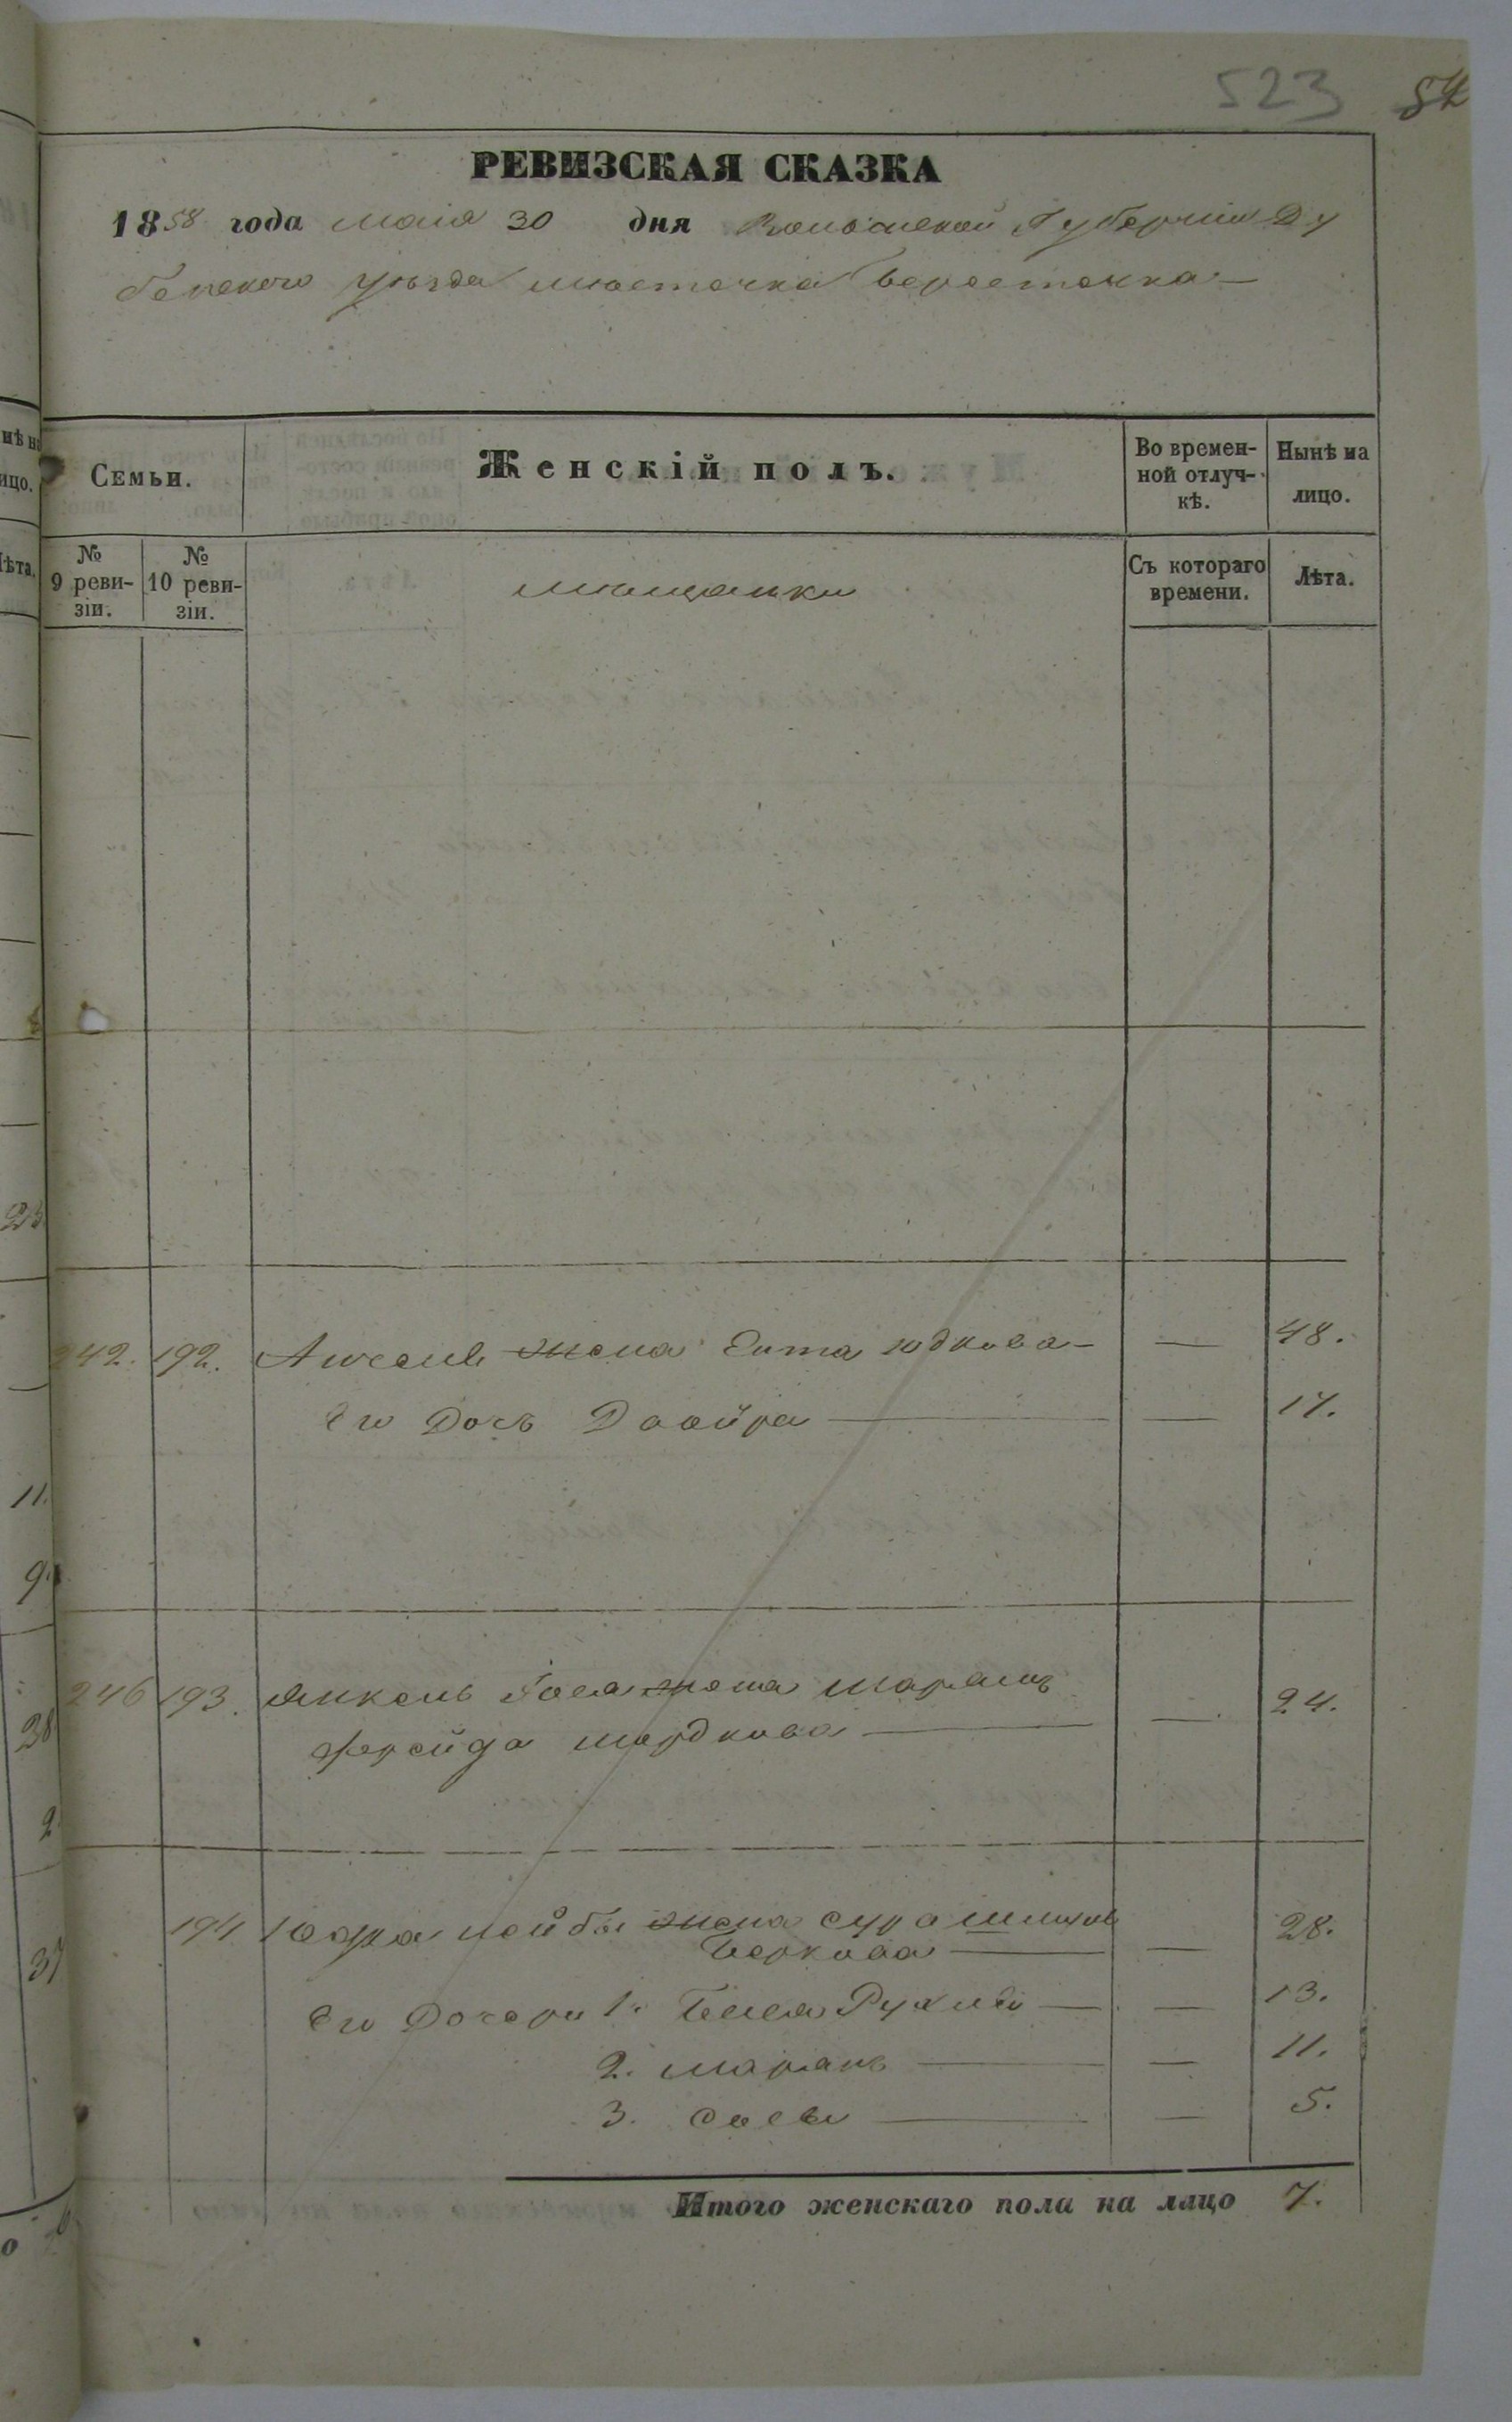 523 54
РЕВИЗСКАЯ СКАЗКА
1858 года маія 30 дня Волынской Губерніи Ду
бенского уѣзда мѣстечка Берестечка
Семьи.
Женскій полъ.
Во времен-
ной отлуч-
кѣ.
Нынѣ на
лицо.
№
9 реви-
зіи.
№
10 реви-
зіи.
мѣщанки
Съ котораго
времени.
Лѣта.
242. 192. жена Ента Юдкова — — 48.
Его Дочь Двойра — — 17.
246 193. Янкель жена Марьямъ
Фрейда Мордкова — — 24.
194 Лейбы жена Сура
Беркова — — 28.
Его Дочери 1. Бейля Рухля — — 13.
2. Марьямъ — — 11.
3. — — 5.
Итого женскаго пола на лицо 7.